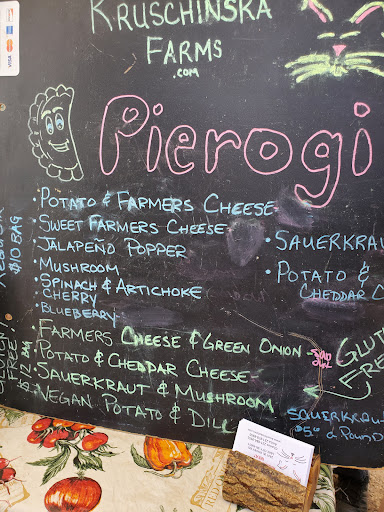 KRUSCHINSKA
FARMS
.COM
VISA
Pierogi
• POTATO & FARMERS CHEESE
• SWEET FARMERS CHEESE
• JALAPEÑO POPPER
• MUSHROOM
• SPINACH & ARTICHOKE
• CHERRY
• BLUEBERRY
$10 BAG
• SAUERKRAU
• POTATO &
CHEDDAR C
• FARMERS CHEESE & GREEN ONION
• POTATO & CHEDDAR CHEESE
• SAUERKRAUT & MUSHROOM
• VEGAN POTATO & DILL
$12 BAG
GLUT
FRE
SAUERKRAU
$5 a POUND